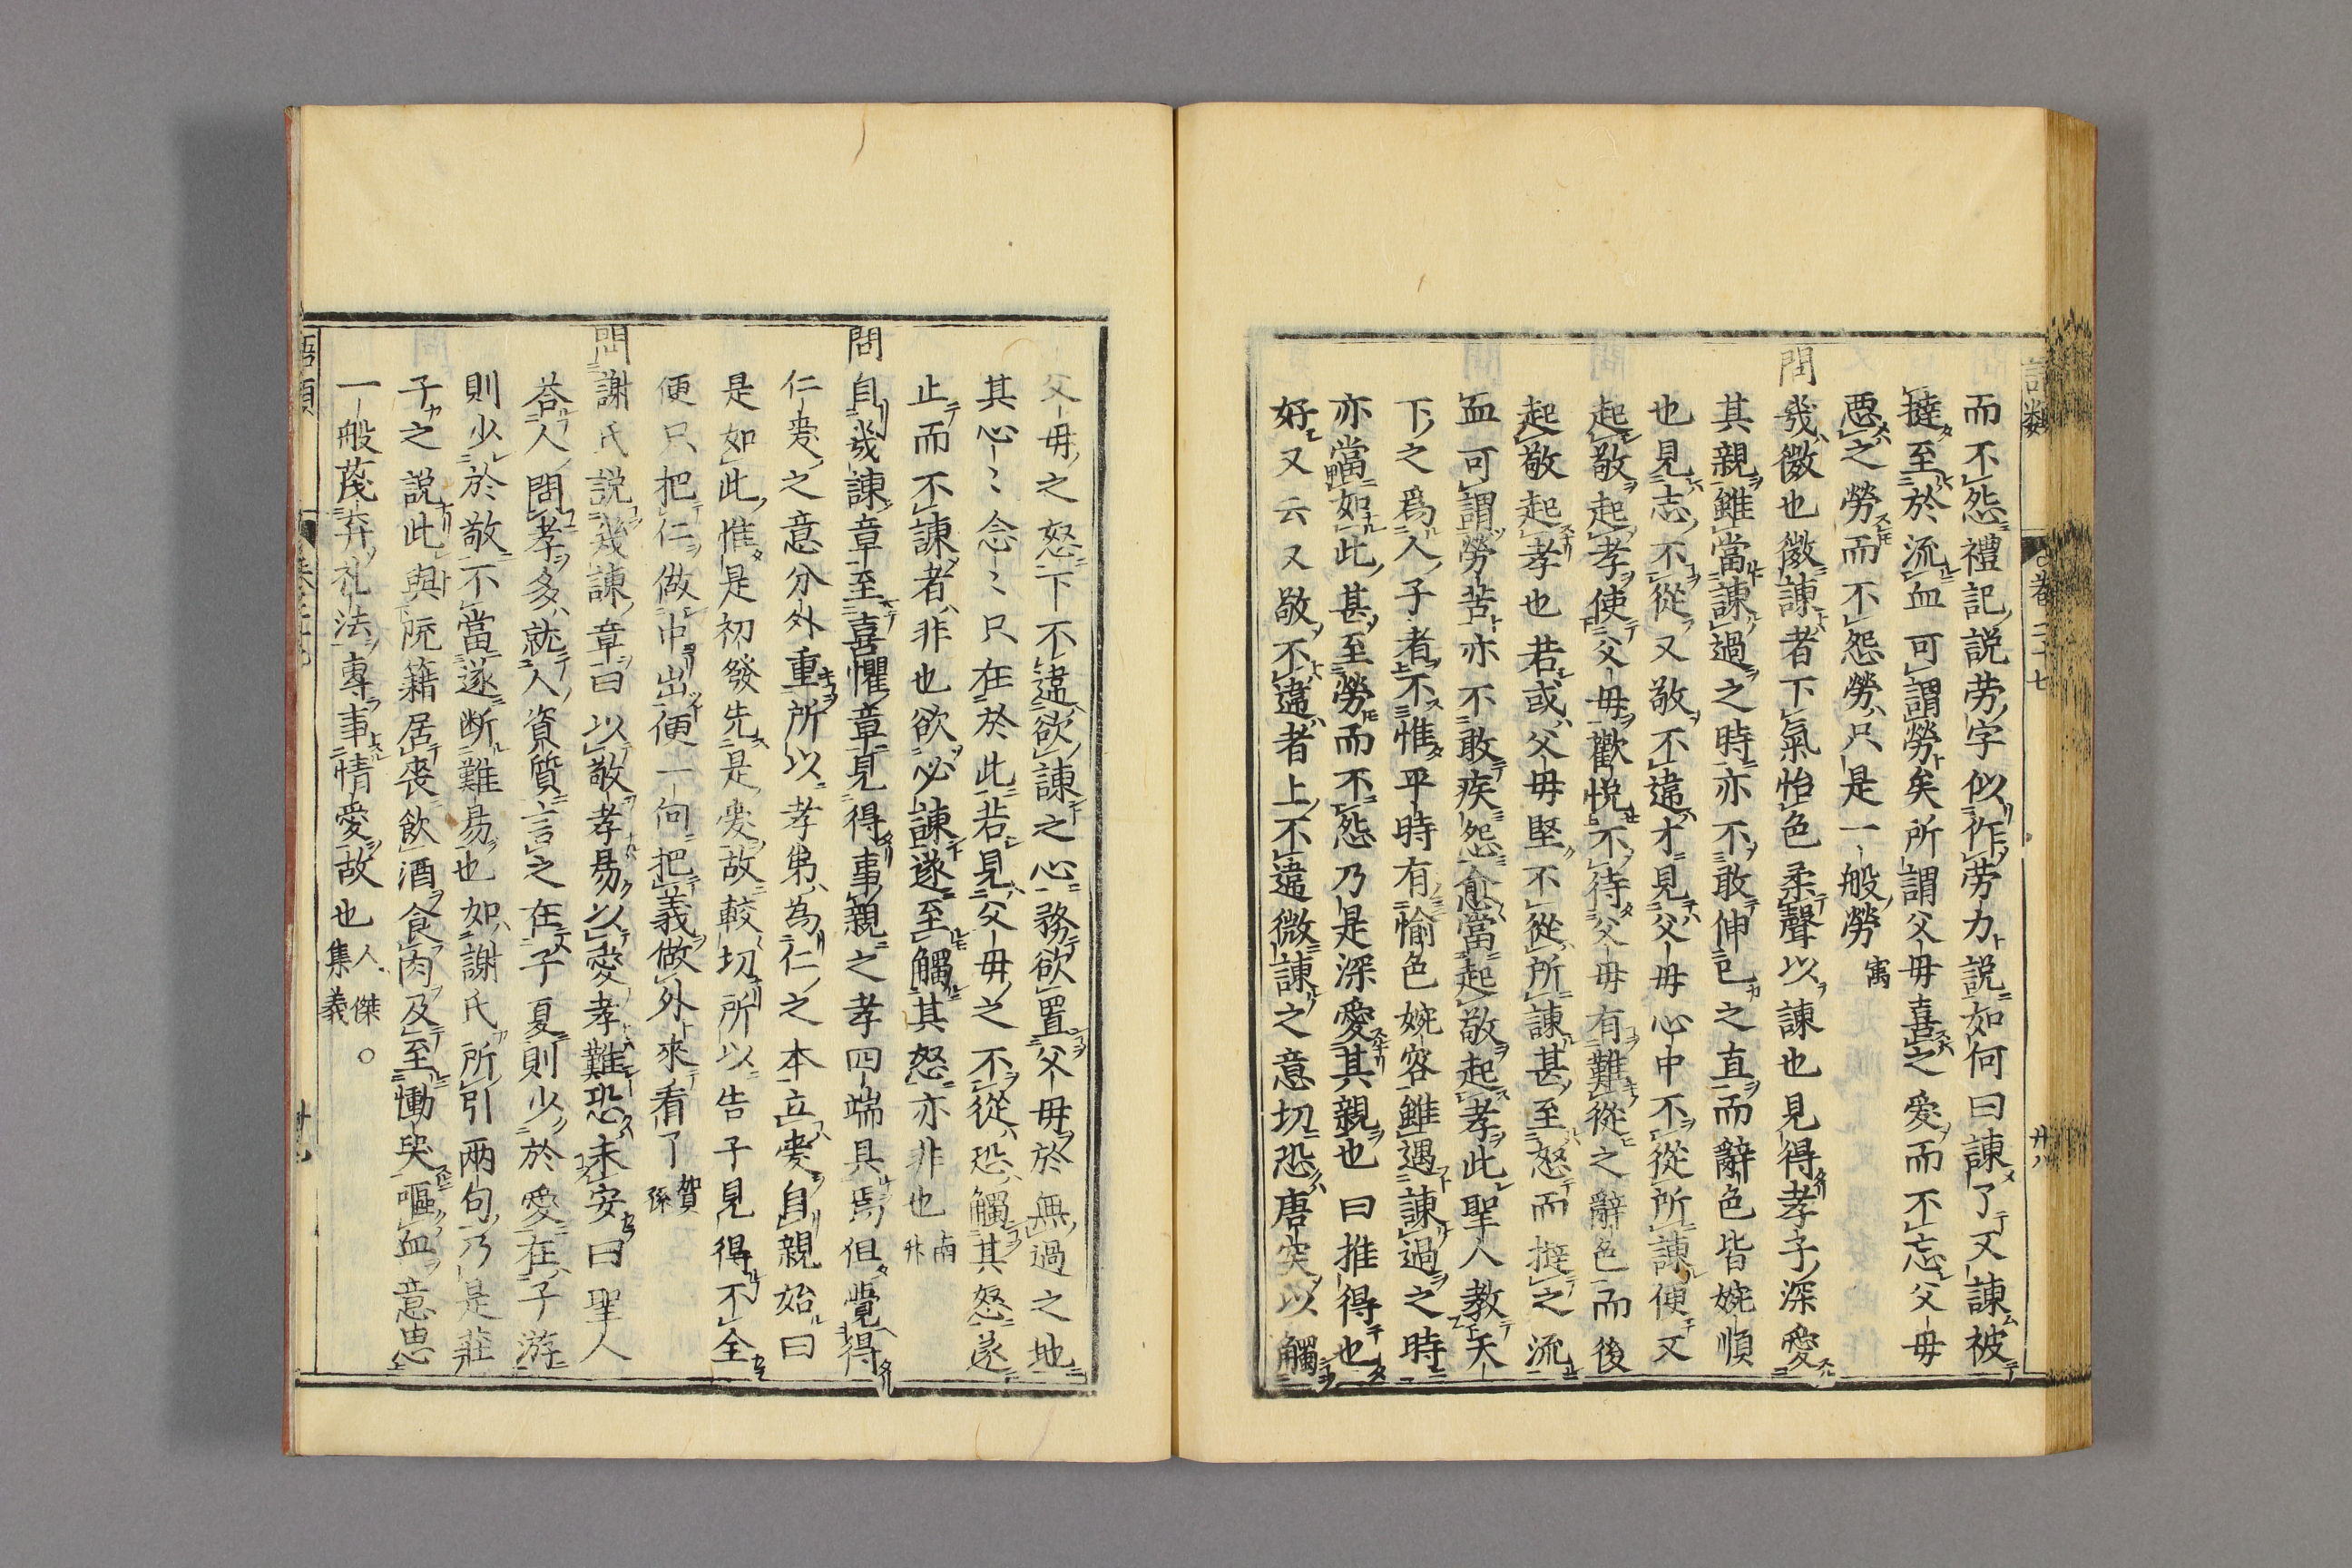 語類
卷二十七
廿八
而不怨禮記説劳字似作劳力説如何曰諫了又諫被
撻至於流血可謂勞矣所謂父母喜之愛而不忘父母
惡之勞而不怨勞只是一般勞寓
問幾微也微諫者下氣怡色柔聲以諫也見得孝子深愛
其親雖當諫過之時亦不敢伸已之直而辭色皆婉順
也見志不從又敬不違才見父母心中不從所諫便又
起敬起孝使父母歡悦不待父母有難從之辭色而後
起敬起孝也若或父母堅不從所諫甚至怒而撻之流
血可謂勞苦亦不敢疾怨愈當起敬起孝此聖人教天
下之爲人子者不惟平時有愉色婉容雖遇諫過之時
亦當如此甚至勞而不怨乃是深愛其親也曰推得也
好又云又敬不違者上不違微諫之意切恐唐突以觸
父母之怒下不違欲諫之心務欲置父母於無過之地
其心〻念〻只在於此若見父母之不從恐觸其怒遂
止而不諫者非也欲必諫遂至觸其怒亦非也南升
問自幾諫章至喜懼章見得事親之孝四端具焉但覺得
仁愛之意分外重所以孝弟為仁之本立愛自親始曰
是如此惟是初發先是愛故較切所以告子見得不全
便只把仁做中出便一向把義做外來看了賀孫
問謝氏説幾諫章曰以敬孝易以愛孝難恐未安曰聖人
荅人問孝多就人資質言之在子夏則少於愛在子游
則少於敬不當遂断難易也如謝氏所引兩句乃是莊
子之説此與阮籍居喪飲酒食肉及至慟哭嘔血意思
一般蔑弃礼法專事情愛故也人傑集義○
語類